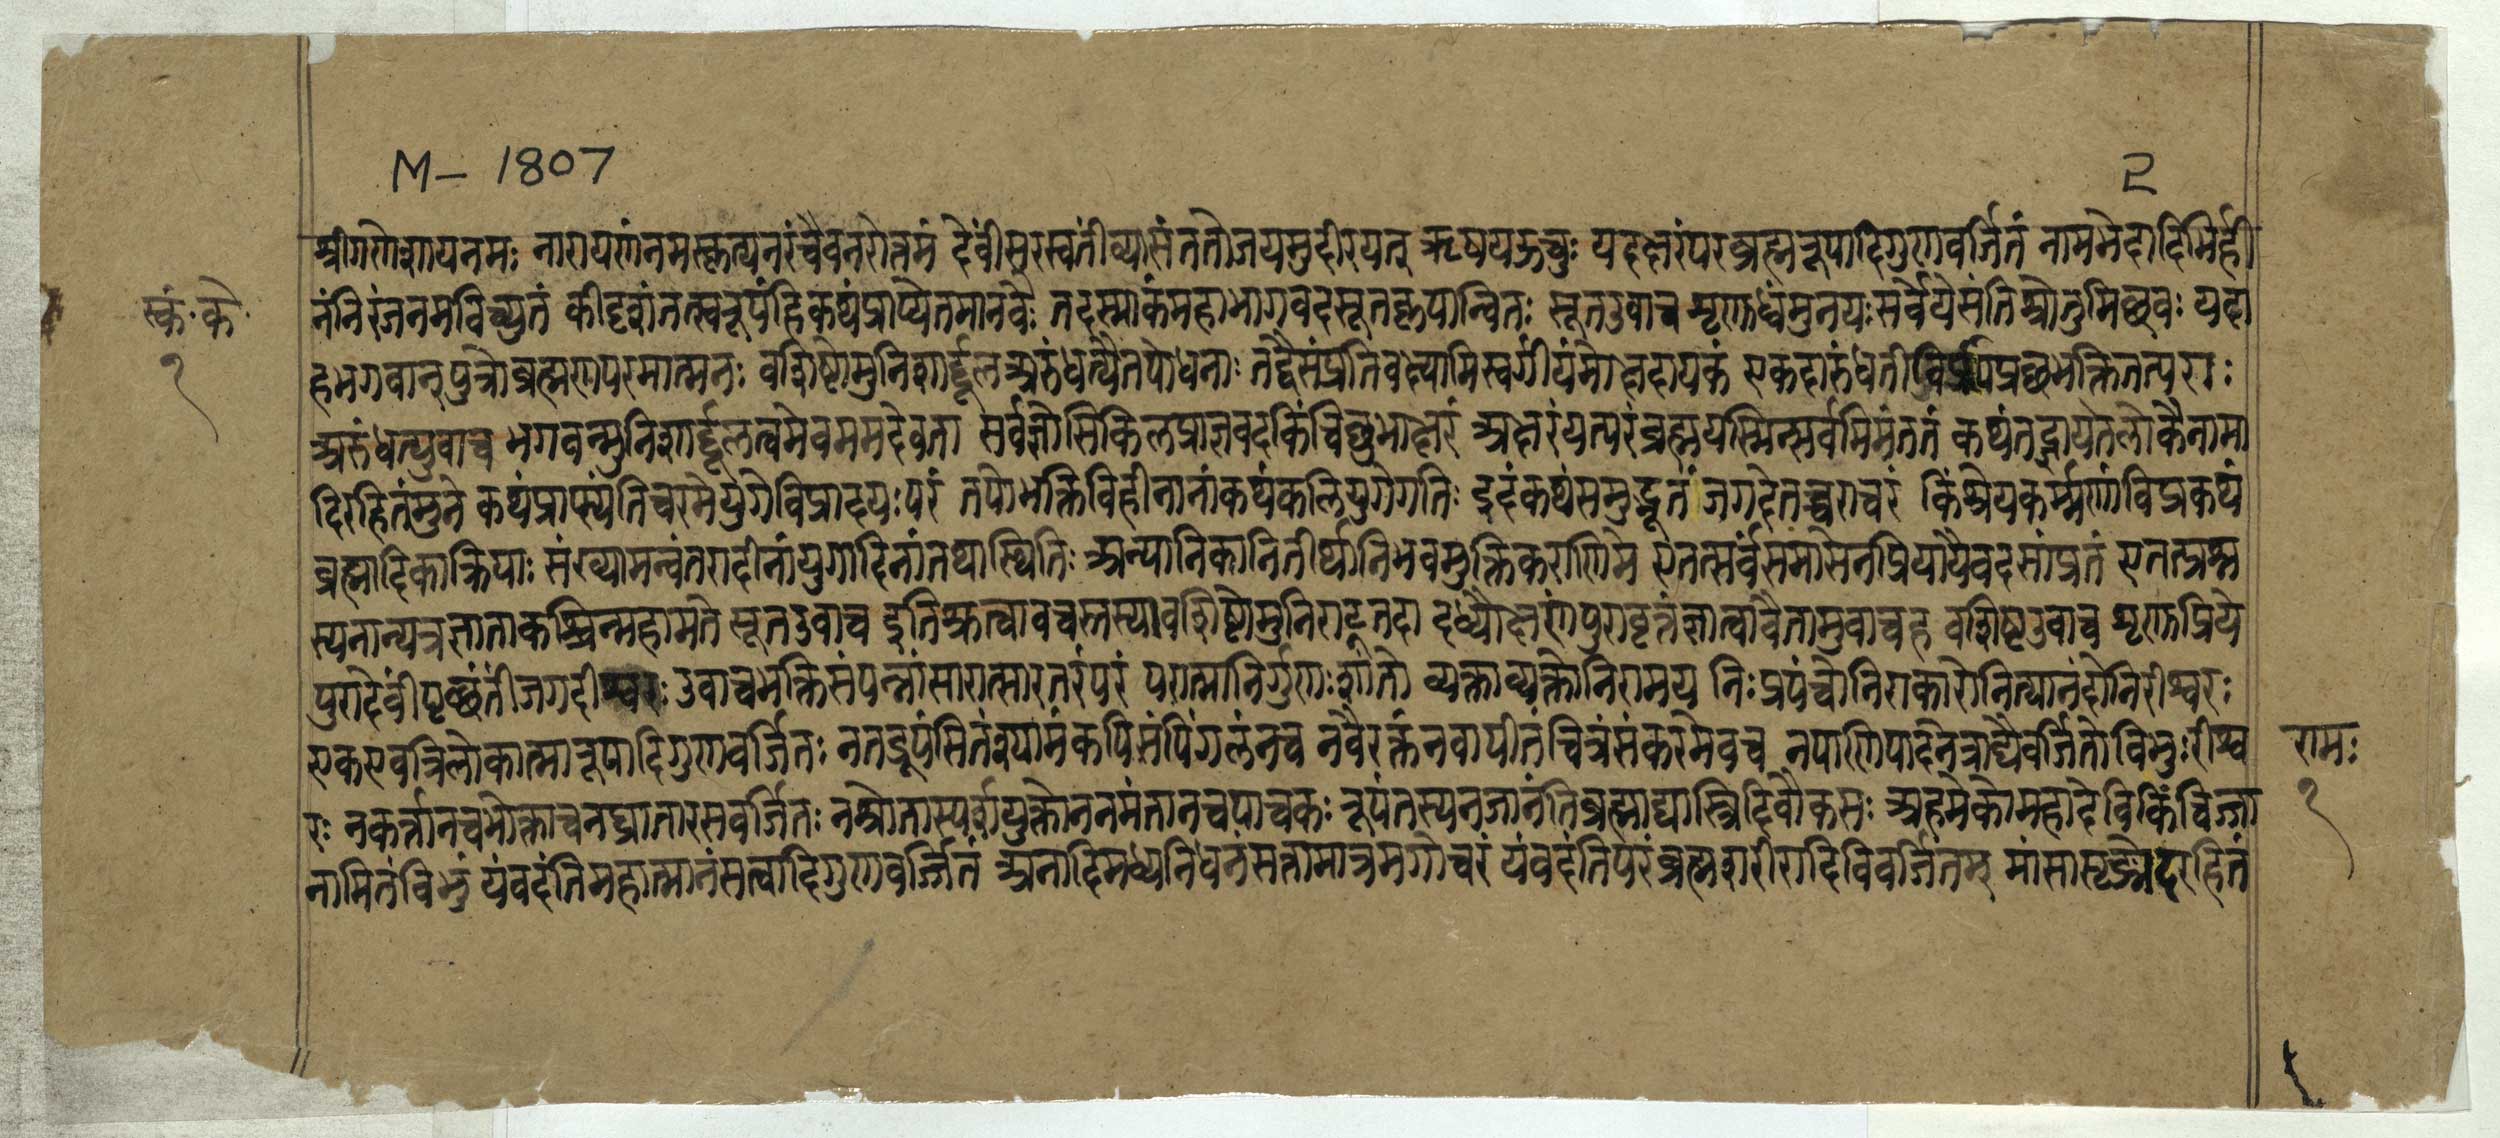 M-1807
२
श्रीगणेशायनमः नारायणंनमस्कृत्यनरंचैवनरोत्तमं देवींसरस्वतींव्यासंततोजयमुदीरयत् ऋषयऊचुः यदक्षरंपरंब्रह्मरूपादिगुणवर्जितं नामभेदादिभिर्ही
नंनिरंजनमविच्युतं कीदृशंतत्स्वरूपंहिकथंप्राप्येतमानवैः तदस्माकंमहाभागवदसूतकृपान्वितः सूतउवाच शृणुध्वंमुनयःसर्वेयेसंतिश्रोतुमिछवः यदा
हभगवान्पुत्रोब्रह्मणःपरमात्मनः वशिष्टोमुनिशार्द्दूलअरुंधत्यैतपोधनाः तद्वैसंप्रतिवक्ष्यामिस्वर्गीयंमोक्षदायकं एकदारुंधती पप्रछभक्तितत्परा
अरुंधत्युवाच भगवन्मुनिशार्द्दूलत्वमेवममदेवता सर्वज्ञोसिकिलप्राज्ञवदकिंचिछुभाक्षरं अक्षरंयत्परंब्रह्मयस्मिन्सर्वमिमंततं कथंतद्ध्यायतेलोकैर्नामा
दिरहितंमुने कथंप्राप्स्यंतिचरमेयुगेविप्रादयःपरं तपोभक्तिविहीनानांकथंकलियुगेगतिः इदंकथंसमुद्भूतंजगदेतच्चराचरं किंश्रेयकर्म्मणांविप्रकथं
ब्रह्मादिकाक्रियाः संख्यामन्वंतरादीनांयुगादिनांतथास्थितिः अन्यानिकानितीर्थानिभवमुक्तिकराणिमे एतत्सर्वंसमासेनप्रियायैवदसांप्रतं एतत्प्रश्न
स्यनान्यत्रज्ञाताकश्चिन्महामते सूतउवाच इतिश्रुत्वावचस्तस्यावशिष्टोमुनिराट्तदा दध्यौक्षणंपुरावृत्तंज्ञात्वावैतामुवाचह वशिष्टउवाच शृणुप्रिये
पुरादेवींपृछंतींजगदीश्वरः उवाचभक्तिसंपन्नांसारात्सारतरंपरं परात्मानिर्गुणःशांतो व्यक्ताव्यक्तोनिरामय निःप्रपंचोनिराकारोनित्यानंदोनिरीश्वरः
एकएवत्रिलोकात्मारूपादिगुणवर्जितः नतद्रूपंसितंश्यामंकपिसंपिंगलंनच नवैरक्तंनवापीतंचित्रंसंकरमेवच नपाणिपादनेत्राद्यैवर्जितोविभुःरीश्व
रः नकर्त्तानचभोक्ताचनघ्रातारसवर्जितः नश्रोतास्पर्शयुक्तोननमंतानचपाचकः रूपंतस्यनजानंतिब्रह्माद्यास्त्रिदिवौकसः अहमेकोमहादेविकिंचिज्जा
नामितंविभुं यंवदंतिमहात्मानंसत्वादिगुणवर्ज्जितं अनादिमध्यनिधनंसत्तामात्रमगोचरं यंवदंतिपरंब्रह्मशरीरादिविवर्जितम् मांसासृङ्मेदरहितं
स्कं·के·
१
रामः
१